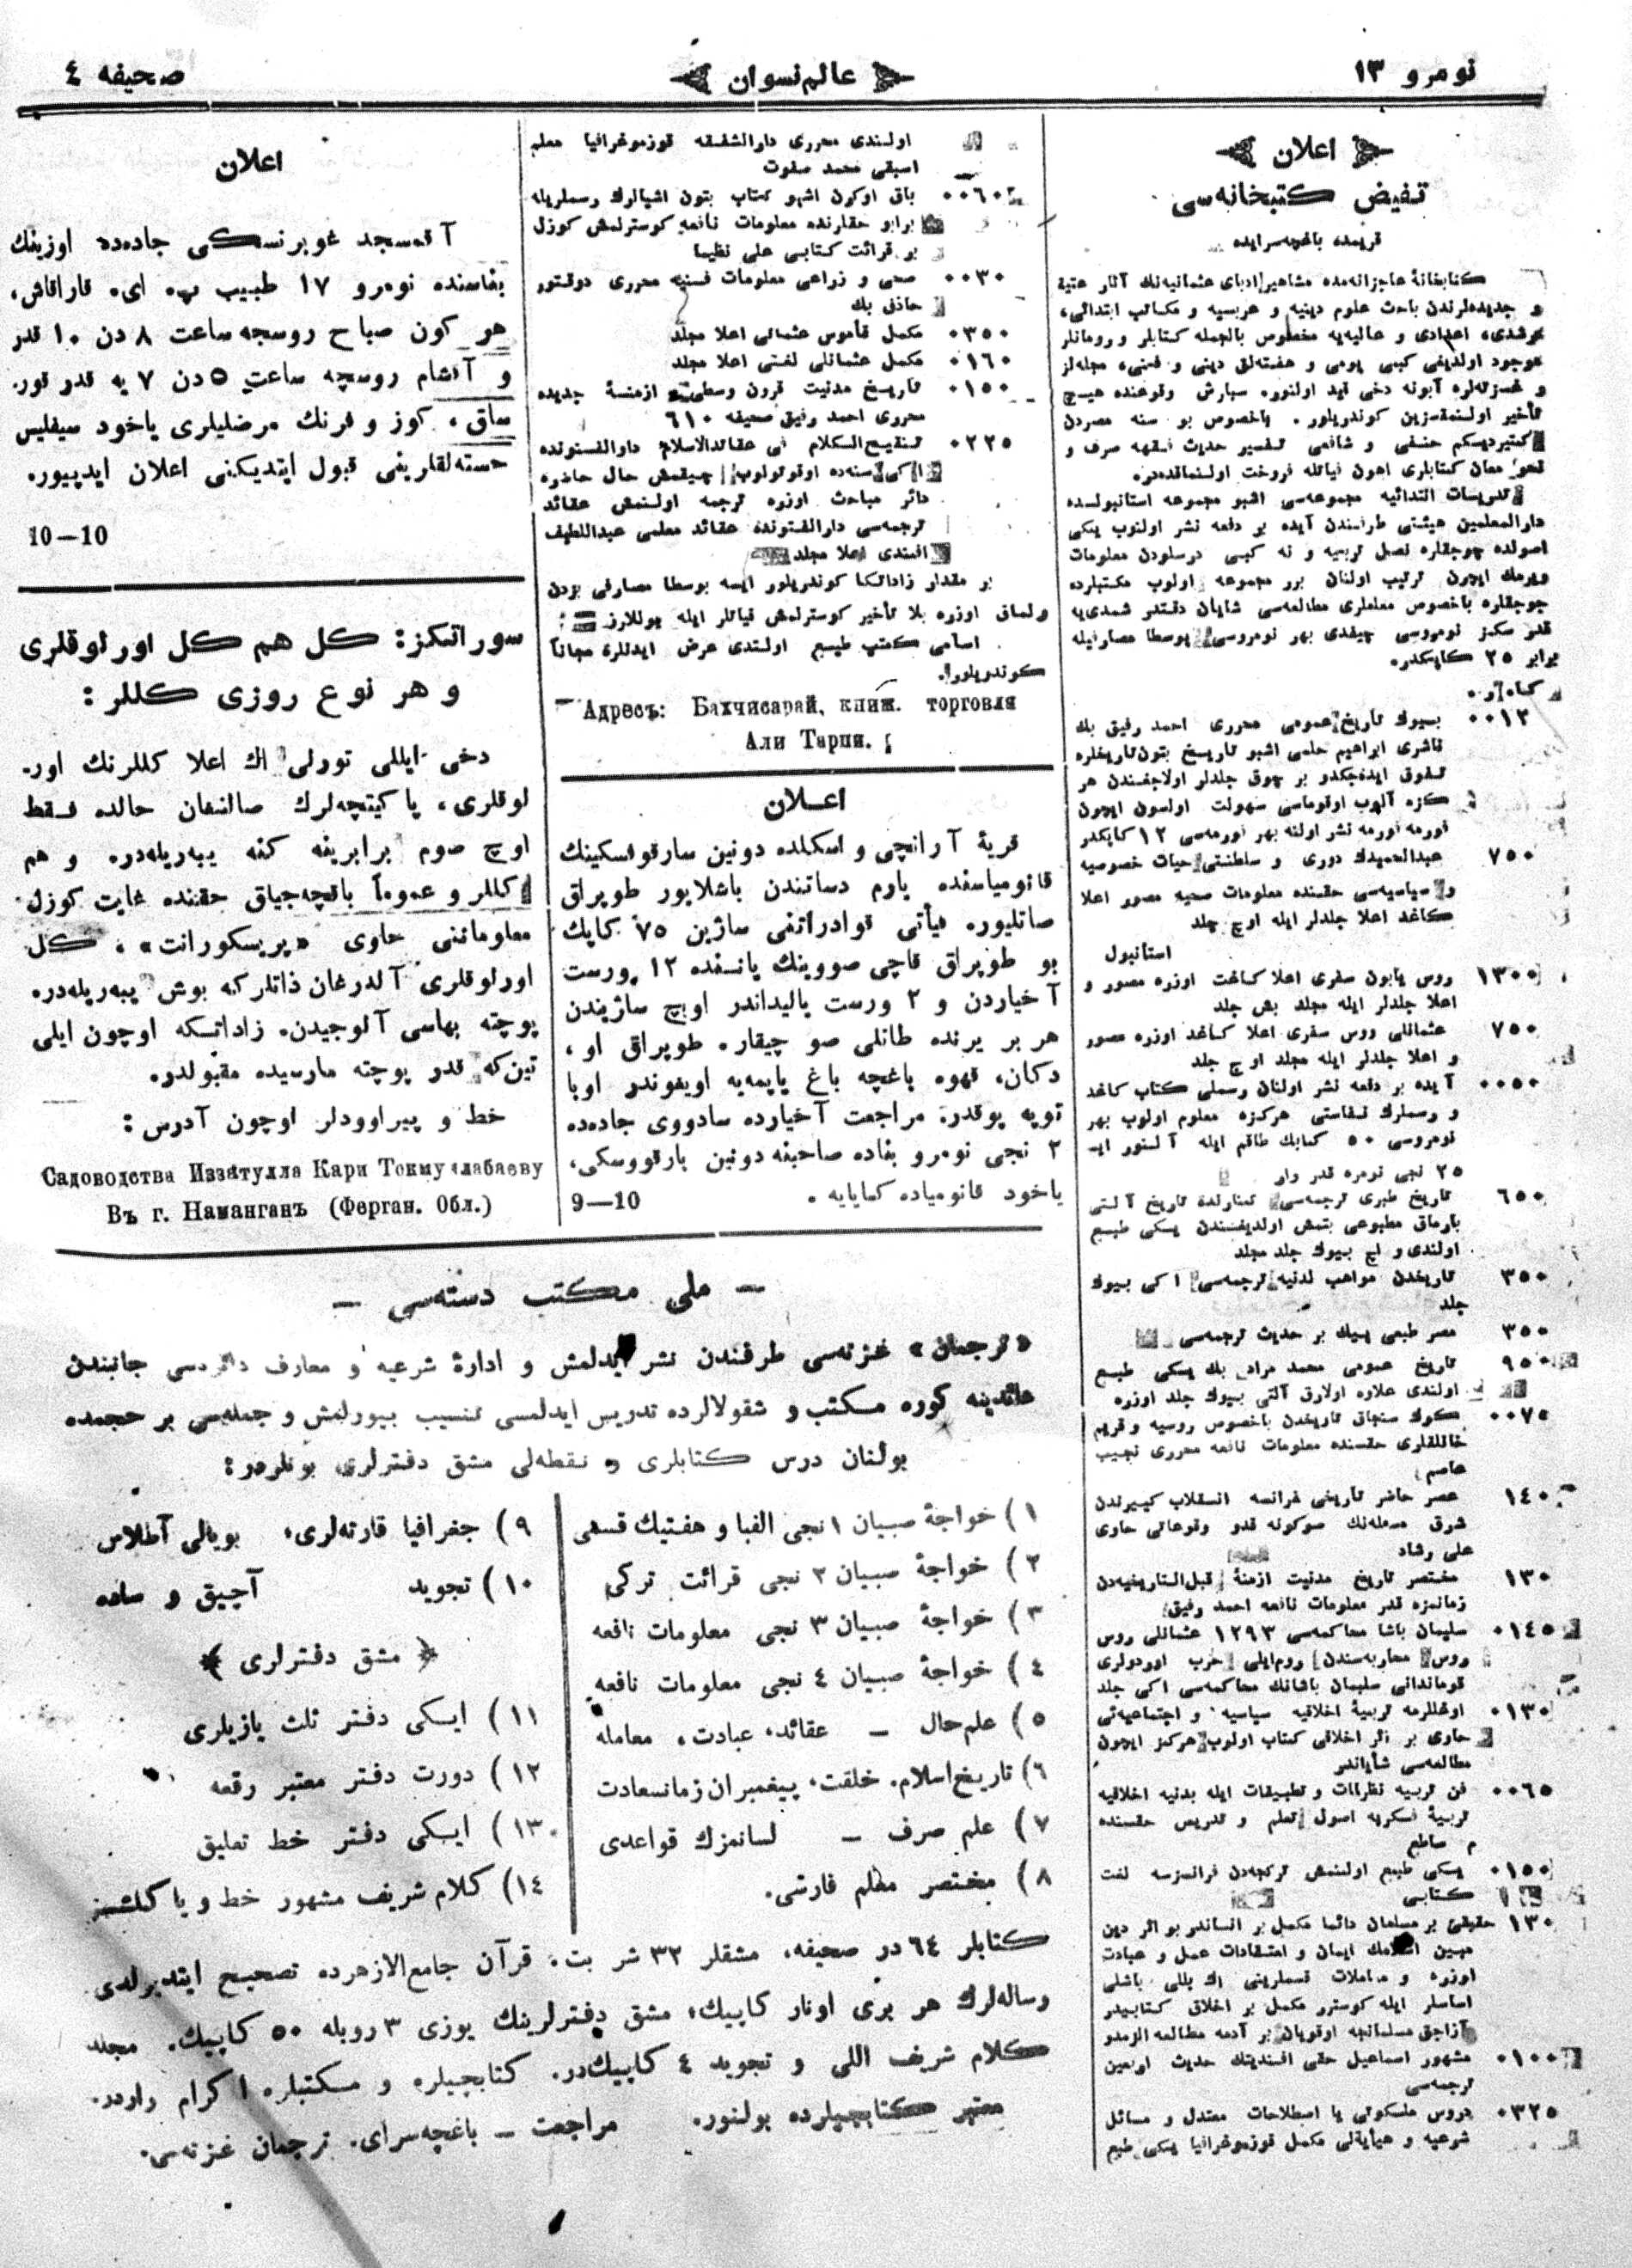 نومرو ١٣
عالم نسوان
صحيفه ٤
اعلان
تفيض كتبخانه‌سى
قريمده باغچه‌سرايده
كتابخانۀ عاجزانه‌مده مشاهير ادباى عثمانيه‌نك آثار عتيقه
و جديده‌لرندن باحث علوم دينيه و عربيه و مكاتب ابتدائى،
رشدى، اعدادى و عاليه‌يه مخصوص بالجمله كتابلر و رومانلر
موجود اولديغى كبى يومى و هفته‌لق دينى و فنى، مجله‌لر
و غزته‌لره آبونه دخى قيد اولنور. سپارش وقوعنده هيچ
تأخير اولنمقسزين كوندريلور. باخصوص بو سنه مصردن
كتيرديكم حنفى و شافعى تفسير حديث فقهه صرف و
نحو معان كتابلرى اهون فياتله فروخت اولنماقده‌در.
تدريسات ابتدائيه مجموعه‌سى اشبو مجموعه استانبولده
دارالمعلمين هيئتى طرفندن آيده بر دفعه نشر اولنوب يكى
اصولده چوجقلره نصل تربيه و نه كبى درسلردن معلومات
ويرمك ايچون ترتيب اولنان برر مجموعه اولوب مكتبلرده
چوجقلره باخصوص معلملرى مطالعه‌سى شايان دقتدر شمدى‌يه
قدر سكز نومروسى چيقدى بهر نومروسى پوسطا مصارفيله
برابر ٢٥ كاپكدر.
٠٠١٢ بيوك تاريخ عمومى محررى احمد رفيق بك
ناشرى ابراهيم حلمى اشبو تاريخ بتون تاريخلره
تفوق ايده‌جكدر بر چوق جلدلر اولاجغندن هر
كزه آلوب اوقوماسى سهولت اولسون ايچون
فورمه فورمه نشر اولنه بهر فورمه‌سى ١٢ كاپكدر
٧٥٠ عبدالحميدك دورى و سلطنتى حيات خصوصيه
و سياسيه‌سى حقنده معلومات صحيه مصور اعلا
كاغد اعلا جلدلر ايله اوچ جلد
استانبول
١٣٠٠ روس ياپون سفرى اعلا كاغت اوزره مصور و
اعلا جلدلر ايله مجلد بش جلد
٧٥٠ عثمانلى روس سفرى اعلا كاغد اوزره مصور
و اعلا جلدلر ايله مجلد اوچ جلد
٠٠٥٠ آيده بر دفعه نشر اولنان رسملى كتاب كاغد
و رسملرك نفاستى هركزه معلوم اولوب بهر
نومروسى ٥٠ كپك طاقم ايله آلنور ايسه
٢٥ نجى نومره قدر وار
٦٥٠ تاريخ طبرى ترجمه‌سى كنارلده تاريخ آلتى
بارماق مطبوعى بتمش اولديغندن يكى طبع
اولندى و اچ بيوك جلد مجلد
٣٥٠ تاريخدن مواهب لدنيه ترجمه‌سى ا كى بيوك
جلد
٣٥٠ مصر طبعى بيك بر حديث ترجمه‌سى
٩٥٠ تاريخ عمومى محمد مراد بك يكى طبع
اولندى علاوه اولارق آلتى بيوك جلد اوزره
٠٠٧٥ كوك سنجاق تاريخدن باخصوص روسيه و قريم
خانلقلرى حقنده معلومات نافعه محررى نجيب
عاصم
١٤٠ عصر حاضر تاريخى فرانسه انقلاب كبيرندن
شرق مسئله‌نك صوكونه قدر وقوعاتى حاوى
على رشاد
١٣٠ مختصر تاريخ مدنيت ازمنۀ قبل‌التاريخيه‌دن
زمانمزه قدر معلومات نافعه احمد رفيق
٠١٤٥ سليمان باشا محاكمه‌سى ١٢٩٣ عثمانلى روس
روس محاربه‌سندن روم‌ايلى حرب اوردولرى
قوماندانى سليمان باشانك محاكمه‌سى اكى جلد
٠١٣٠ اوغللرمه تربيۀ اخلاقيه سياسيه و اجتماعيه‌تى
حاوى بر اثر اخلاقى كتاب اولوب هركز ايچون
مطالعه‌سى شاياندر
٠٠٦٥ فن تربيه نظريات و تطبيقات ايله بدنيه اخلاقيه
تربيۀ فكريه اصول تعلم و تدريس حقنده
م ساطع
٠١٥٠ يكى طبع اولنمش تركجه‌دن فرانسزسه لغت
كتابى
١٣٠ حقيقى بر مسلمان دائما مكمل بر انساندر بو اثر دين
مبين اسلامك ايمان و اعتقادات عمل و عبادت
اوزره و معاملات قسملرينى اك بللى باشلى
اساسلر ايله كوسترر مكمل بر اخلاق كتابيدر
آزاجق مسلمانجه اوقويان بر آدمه مطالعه الزمدر
٠١٠٠ مشهور اسماعيل حقى افندينك حديث اربعين
ترجمه‌سى
٠٣٢٥ دروس ملكوتى يا اصطلاحات معتدل و مسائل
شرعيه و هيأيه‌لى مكمل قوزموغرافيا يكى طبع
اولندى محررى دارالشفقه قوزموغرافيا معلم
اسبقى محمد صفوت
٠٠٦٠ باق اوكرن اشبو كتاب بتون اشيالرك رسملريله
برابر حقلرنده معلومات نافعه كوسترلمش كوزل
بر قرائت كتابى على نظيما
٠٠٣٠ صحى و زراعى معلومات فنيه محررى دوقتور
حاذق بك
٠٣٥٠ مكمل قاموس عثمانى اعلا مجلد
٠١٦٠ مكمل عثمانلى لغتى اعلا مجلد
٠١٥٠ تاريخ مدنيت قرون وسطى ازمنۀ جديده
محررى احمد رفيق صحيفه ٦١٠
٠٢٢٥ تنقيح‌الكلام فى عقائدالاسلام دارالفنونده
ا كى سنه‌ده اوقوتولوب چيقمش حال حاضره
دائر مباحث اوزره ترجمه اولنمش عقائد
ترجمه‌سى دارالفنونده عقائد معلمى عبداللطيف
افندى اعلا مجلد
بر مقدار زاداتكا كوندريلور ايسه پوسطا مصارفى بزدن
ولماق اوزره بلا تأخير كوسترلمش فياتلر ايله يوللارز
اسامى كتب طبع اولندى عرض ايدنلره مجاناً
كوندريلور.
Адресъ: Бахчисарай, книж. торговля
Али Тарпи.
اعلان
قريۀ آرانچى و اسكلده دونين سارقوفسكينك
قانومياسنده يارم دساتندن باشلايور طوپراق
صاتليور. فيأتى قوادراتنى ساژين ٧٥ كاپك
بو طوپراق قاچى صووينك يانسنده ١٢ ورست
آخياردن و ٢ ورست ياليداندر اوچ ساژيندن
هر بر يرنده طاتلى صو چيقار. طوپراق او،
دكان، قهوه باغچه باغ ياپمه‌يه اويغوندر اوبا
توپه يوقدر. مراجعت آخيارده سادووى جاده‌ده
٢ نجى نومرو بناده صاحبنه دونين بارقووسكى،
ياخود قانومياده كمايايه.
9—10
اعلان
آقمسجد غوبرنسكى جاده‌ده اوزينك
بناسنده نومرو ١٧ طبيب پ. اى. قاراقاش،
هر كون صباح روسجه ساعت ٨ دن ١٠ قدر
و آقشام روسچه ساعت ٥ دن ٧ يه قدر قور-
ساق، كوز و فرنك مرضليلرى ياخود سيفليس
خسته‌لقلرينى قبول ايتديكنى اعلان ايديپور.
10—10
سوراتكز: كل هم كل اورلوقلرى
و هر نوع روزى كللر:
دخى ايللى تورلى اك اعلا كللرنك اور-
لوقلرى، پاكيتچه‌لرك صالنغان حالده فقط
اوچ صوم برابرينه كنه يبه‌ريله‌در. و هم
كللر و عموماً باقچه‌جياق حقنده غايت كوزل
معلوماتنى حاوى «پريسكورانت»، كل
اورلوقلرى آلدرغان ذاتلركه بوش يبه‌ريله‌در.
پوچته بهاسى آلوجيدن. زاداتسكه اوچون ايلى
تين‌كه قدر پوچته مارسيده مقبولدر.
خط و پيراوودلر اوچون آدرس:
Садоводства Иззатулла Кари Токмухлабаеву
Въ г. Наманганъ (Ферган. Обл.)
— ملى مكتب دسته‌سى —
«ترجمان» غزته‌سى طرفندن نشر ايدلمش و ادارۀ شرعيه و معارف دائره‌سى جانبندن
عائدينه كوره مكتب و شقولالرده تدريس ايدلمسى تنسيب بيورلمش و جمله‌سى بر حجمده
بولنان درس كتابلرى و نقطه‌لى مشق دفترلرى بونلردر:
١) خواجۀ صبيان ١ نجى الفبا و هفتيك قسمى
٢) خواجۀ صبيان ٢ نجى قرائت تركى
٣) خواجۀ صبيان ٣ نجى معلومات نافعه
٤) خواجۀ صبيان ٤ نجى معلومات نافعه
٥) علم حال — عقائد، عبادت، معامله
٦) تاريخ اسلام. خلقت، پيغمبران زمانسعادت
٧) علم صرف — لسانمزك قواعدى
٨) مختصر معلم فارسى.
٩) جغرافيا قارته‌لرى، بويالى آطلاس
١٠) تجويد آچيق و ساده
﴿ مشق دفترلرى ﴾
١١) ايكى دفتر ثلث يازيلرى
١٢) دورت دفتر معتبر رقعه
١٣) ايكى دفتر خط تعليق
١٤) كلام شريف مشهور خط و ياكلشسز
كتابلر ٦٤ در صحيفه، مشقلر ٣٢ شر بت، قرآن جامع‌الازهرده تصحيح ايتديرلدى
رساله‌لرك هر برى اونار كاپيك، مشق دفترلرينك يوزى ٣ روبله ٥٠ كاپيك. مجلد
كلام شريف اللى و تجويد ٤ كاپيك‌در. كتابچيلره و مكتبلره ا كرام واردر.
معتبر كتابچيلرده بولنور. مراجعت — باغچه‌سراى. ترجمان غزته‌سى.